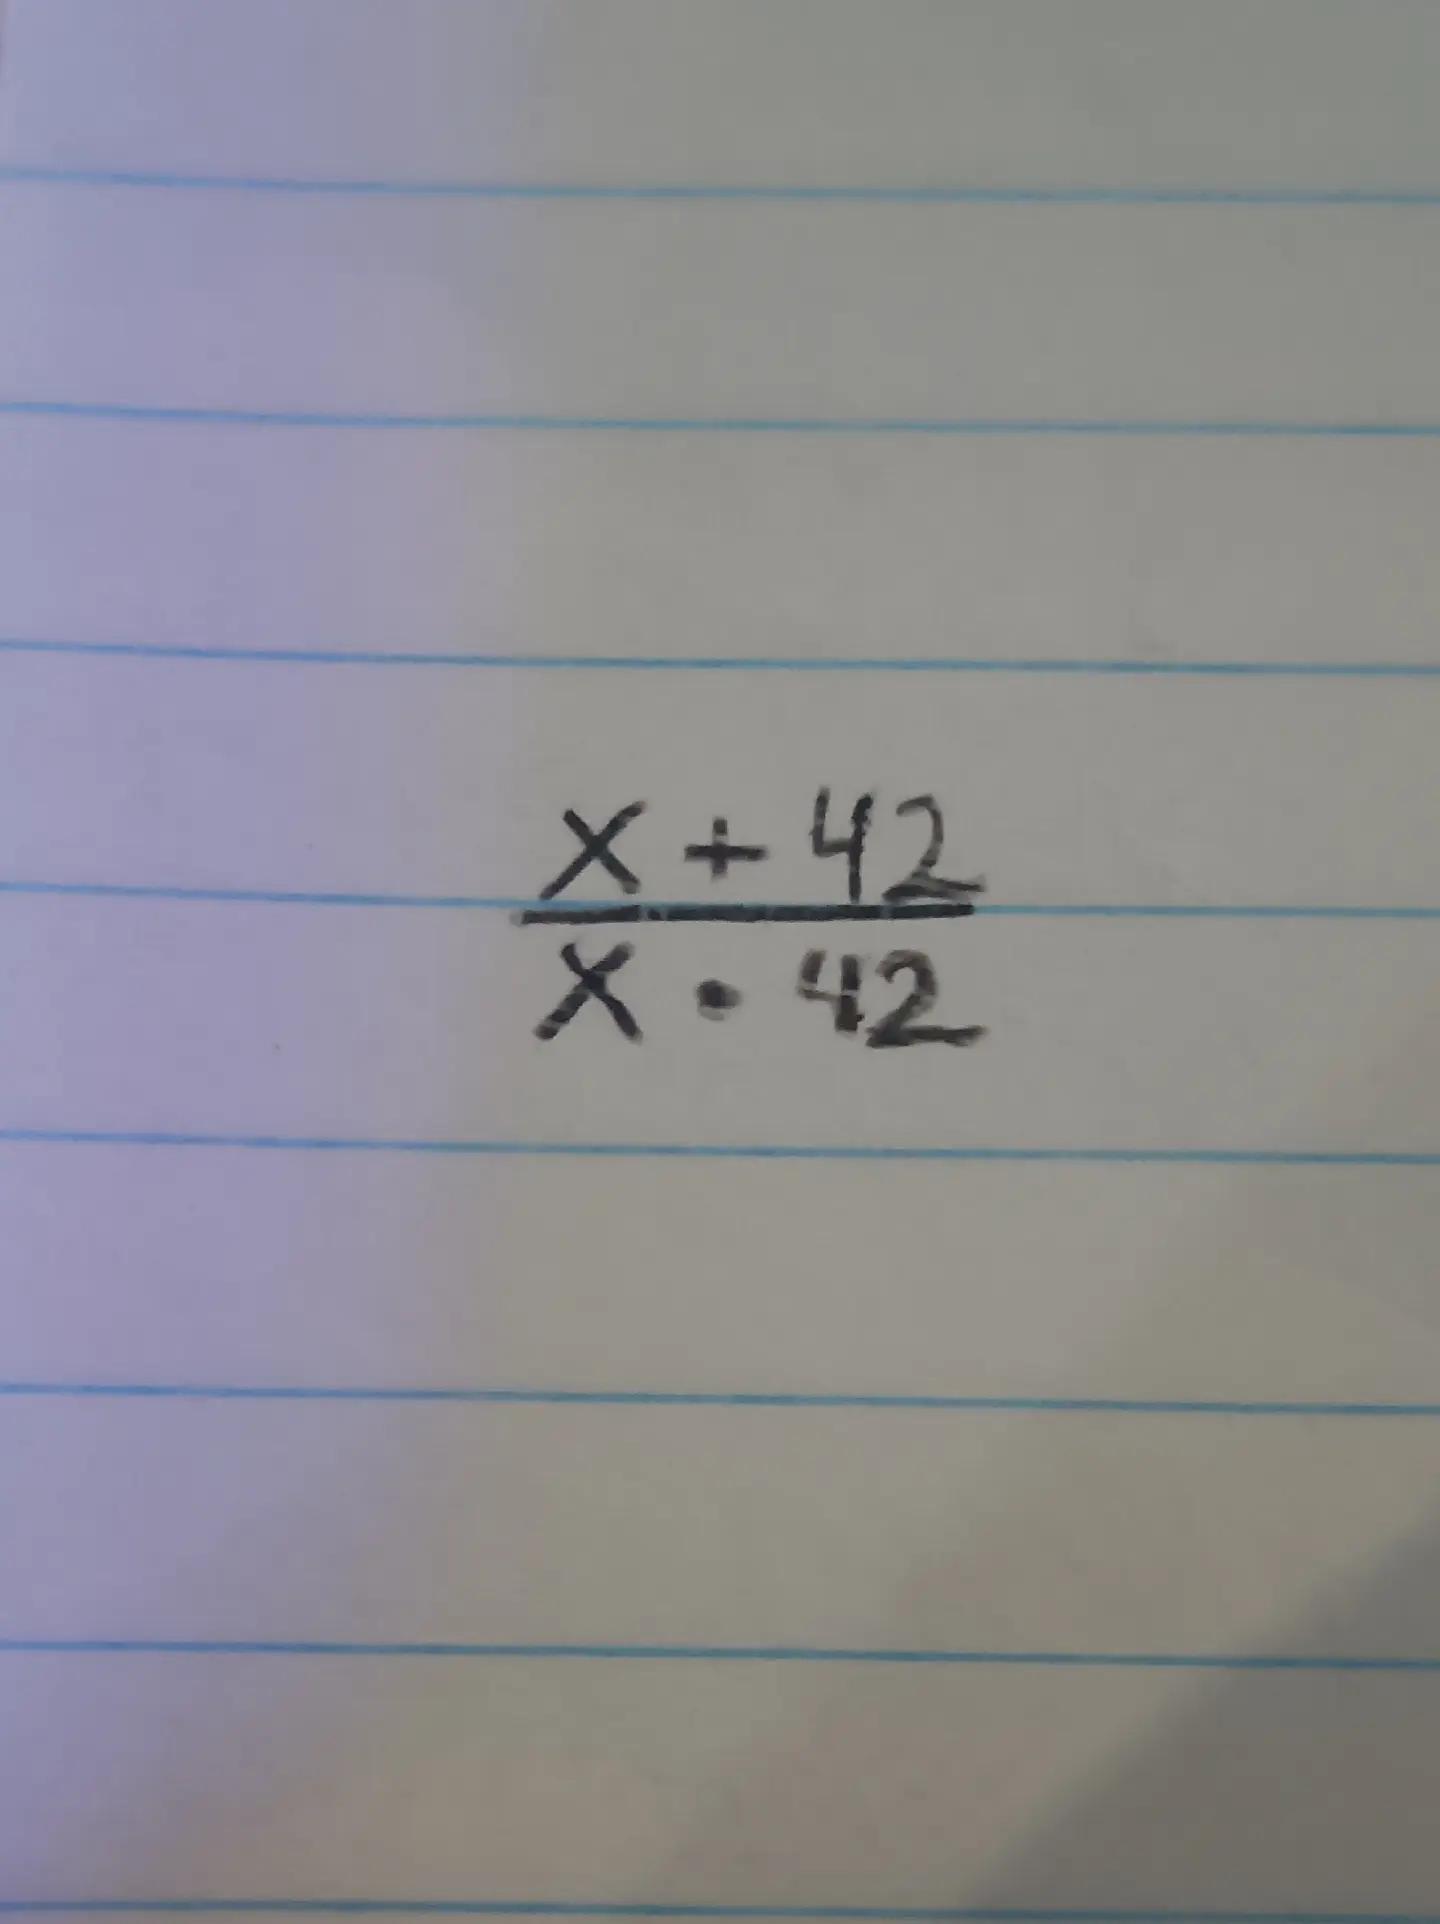 x + 42
x · 42